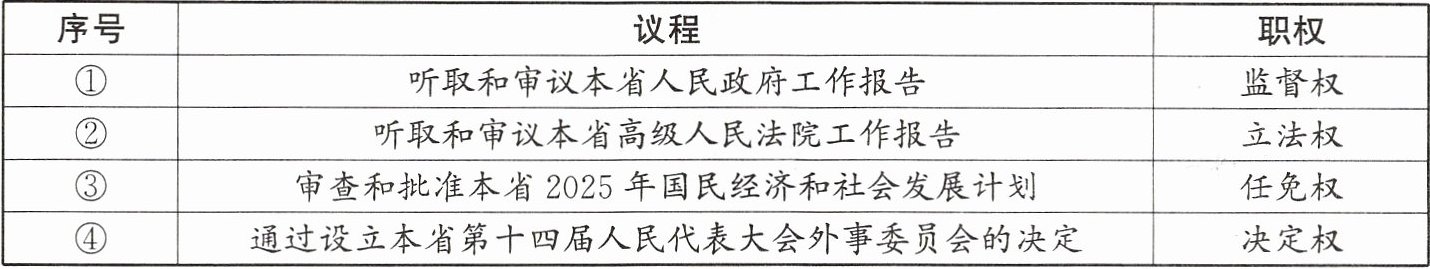 序号 议程 职权
① 听取和审议本省人民政府工作报告 监督权
② 听取和审议本省高级人民法院工作报告 立法权
③ 审查和批准本省2025年国民经济和社会发展计划 任免权
④ 通过设立本省第十四届人民代表大会外事委员会的决定 决定权